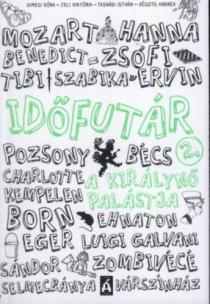 GIMESI DÓRA - ZELI VIKTÓRIA - TASNÁDI ISTVÁN - VÉSZITS ANDREA
MOZART HANNA
BENEDICT ZSÓFI
TIBI SZABIKA ERVIN
IDŐFUTÁR
POZSONY BÉCS 2.
CHARLOTTE A KIRÁLYNŐ
KEMPELEN PALÁSTJA
BORN EHNATON
EGER LUIGI GALVANI
SÁNDOR ZOMBIVECE
SELMECBÁNYA Á VÁRSZÍNHÁZ